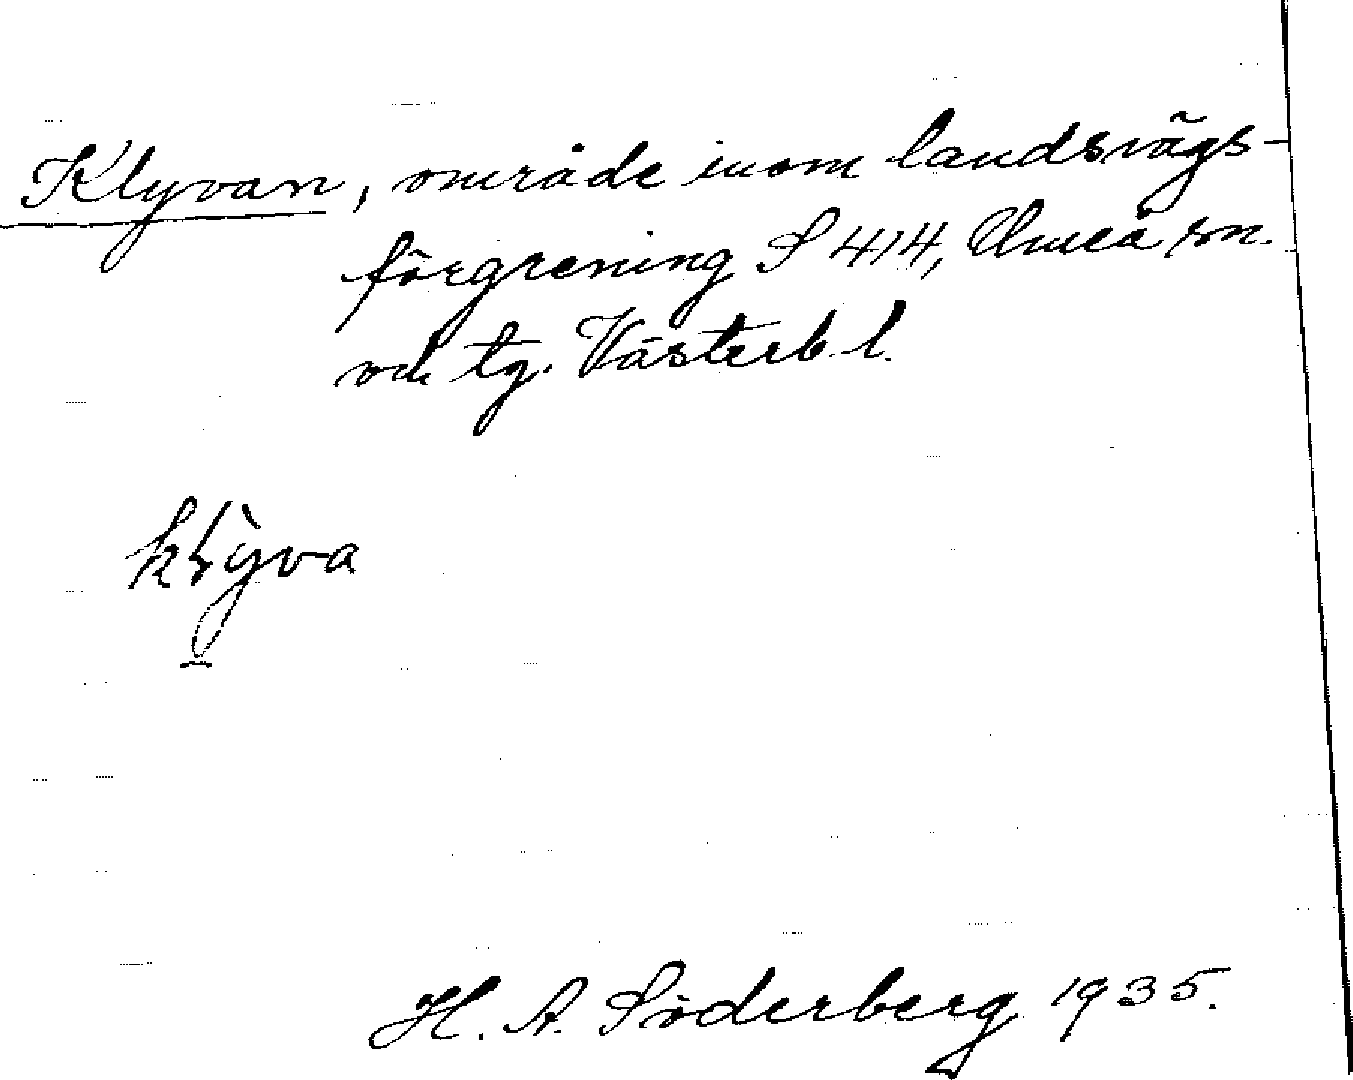 Klyvan, område inom landsvägs-
förgrening S 414, Umeå sn.
och tg. Västerb. l.
klỳva
H. A. Söderberg 1935.